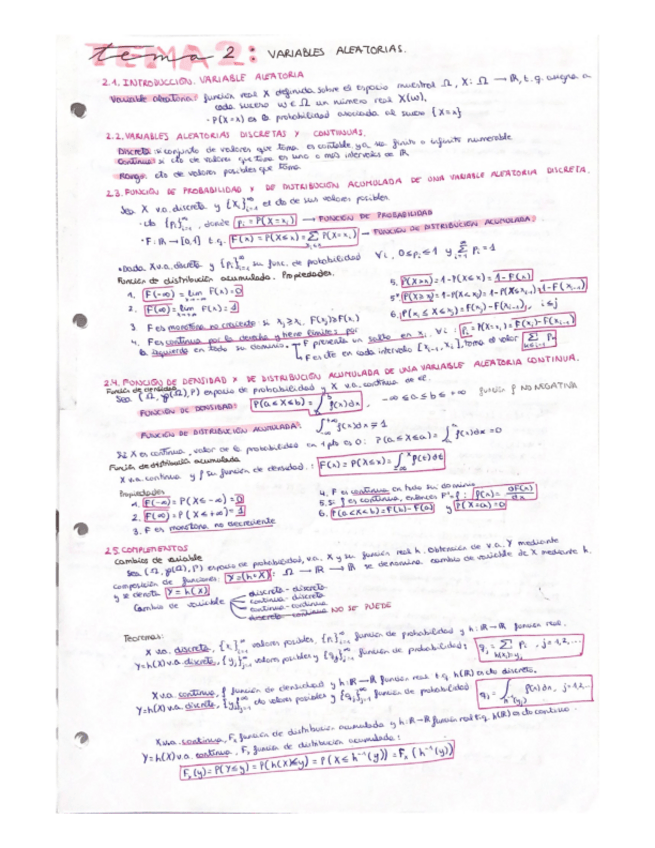 tema 2: VARIABLES ALEATORIAS.
2.1. INTRODUCCIÓN. VARIABLE ALEATORIA
Variable aleatoria: función real X definida sobre el espacio muestral Ω, X: Ω → ℝ, t.q. asigna a
cada suceso w ∈ Ω un número real X(w).
· P(X=x) es la probabilidad asociada al suceso {X=x}
2.2. VARIABLES ALEATORIAS DISCRETAS Y CONTINUAS.
Discreta: si conjunto de valores que toma es contable ya sea finito o infinito numerable
Continua: si cto de valores que toma es uno o más intervalos de ℝ
Rango: cto de valores posibles que toma
2.3. FUNCIÓN DE PROBABILIDAD Y DE DISTRIBUCIÓN ACUMULADA DE UNA VARIABLE ALEATORIA DISCRETA.
Sea X v.a. discreta y {x_i}_{i=1}^∞ el cto de sus valores posibles.
· cto {p_i}_{i=1}^∞, donde p_i = P(X=x_i) → FUNCIÓN DE PROBABILIDAD
· F: ℝ → [0,1] t.q. F(x) = P(X≤x) = Σ P(X=x_i) → FUNCIÓN DE DISTRIBUCIÓN ACUMULADA.
• Dada X v.a. discreta y {p_i}_{i=1}^∞ su func. de probabilidad ∀i, 0≤p_i≤1 y Σ p_i = 1
Función de distribución acumulada. Propiedades.
1. F(-∞) = lim F(x) = 0
2. F(∞) = lim F(x) = 1
3. F es monótona no creciente: si x_j ≥ x_i, F(x_j) ≥ F(x_i)
4. F es continua por la derecha y tiene límites por
la izquierda en todo su dominio.
F presenta un salto en x_i, ∀i: p_i = P(X=x_i) = F(x_i) - F(x_{i-1})
F es cte en cada intervalo [x_{i-1}, x_i], toma el valor
5. P(X>x) = 1-P(X≤x) = 1-F(x)
6. P(x_i ≤ X ≤ x_j) = F(x_j) - F(x_{i-1}), i≤j
2.4. FUNCIÓN DE DENSIDAD Y DE DISTRIBUCIÓN ACUMULADA DE UNA VARIABLE ALEATORIA CONTINUA.
Función de densidad
Sea (Ω, ℘(Ω), P) espacio de probabilidad y X v.a. continua de él.
FUNCIÓN DE DENSIDAD: P(a≤X≤b) = ∫_a^b f(x)dx, -∞ ≤ a ≤ b ≤ +∞ función f NO NEGATIVA
FUNCIÓN DE DISTRIBUCIÓN ACUMULADA:
Si X es continua, valor de la probabilidad en 1 pto es 0: P(a≤X≤a) = ∫ f(x)dx = 0
Función de distribución acumulada
X v.a. continua y f su función de densidad.: F(x) = P(X≤x) = ∫_{-∞}^x f(t)dt
Propiedades
1. F(-∞) = P(X≤-∞) = 0
2. F(∞) = P(X≤+∞) = 1
3. F es monótona no decreciente
4. F es continua en todo su dominio
5. Si f es continua, entonces F'=f: f(x) = dF(x)/dx
6. P(a≤X≤b) = F(b) - F(a) y P(X=a) = 0
2.5. COMPLEMENTOS
Cambios de variable
Sea (Ω, ℘(Ω), P) espacio de probabilidad, v.a. X y sea función real h. Obtención de v.a. Y mediante
composición de funciones: Y = (h∘X): Ω → ℝ → ℝ se denomina cambio de variable de X mediante h.
y se denota Y = h(X)
Cambio de variable
discreta - discreta
continua - discreta
continua - continua
discreta - continua NO SE PUEDE
Teoremas:
X v.a. discreta, {x_i}_{i=1}^∞ valores posibles, {p_i}_{i=1}^∞ función de probabilidad y h: ℝ→ℝ función real.
Y=h(X) v.a. discreta, {y_j}_{j=1}^∞ valores posibles y {q_j}_{j=1}^∞ función de probabilidad: q_j = Σ_{h(x_i)=y_j} p_i, j=1,2,...
X v.a. continua, f función de densidad y h: ℝ→ℝ función real t.q. h(ℝ) es cto discreto.
Y=h(X) v.a. discreta, {y_j}_{j=1}^∞ cto valores posibles y {q_j}_{j=1}^∞ función de probabilidad q_j = ∫_{h⁻¹(y_j)} f(x)dx, j=1,2,...
X v.a. continua, F_x función de distribución acumulada y h: ℝ→ℝ función real t.q. h(ℝ) es cto continuo.
Y=h(X) v.a. continua, F_y función de distribución acumulada:
F_y(y) = P(Y≤y) = P(h(X)≤y) = P(X≤h⁻¹(y)) = F_x(h⁻¹(y))